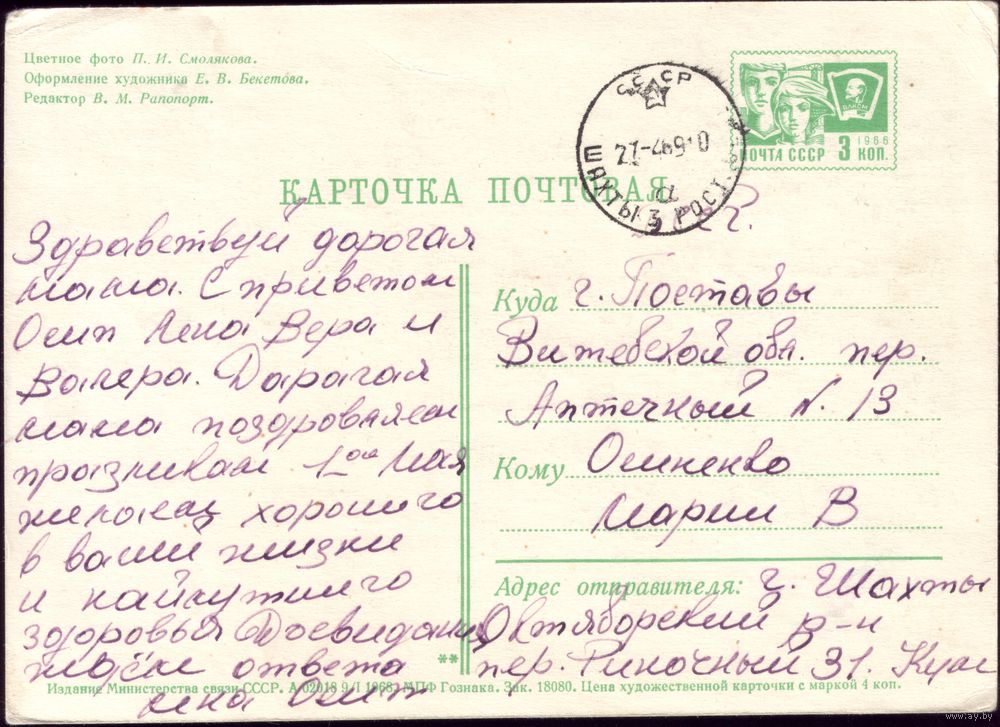 Цветное фото П. И. Смолякова.
Оформление художника Е. В. Бекетова.
Редактор В. М. Рапопорт.
СССР
27-4 69 10
ШАХТЫ 3 РОСТ.
а
ВЛКСМ
1966
ПОЧТА СССР 3 КОП.
КАРТОЧКА ПОЧТОВАЯ
Здравствуй дорогая
мама. С приветом
Осип Лена Вера и
Валера. Дарагая
мама поздровляем
празникам 1ое Мая
желаем хорошиго
в вашей жизни
и найлутшиго
здоровья Досвидания
ждём ответа
Лена Осип
Куда г. Поставы
Витебской обл. пер.
Аптечный N. 13
Кому
Марии В
Адрес отправителя: г. Шахты
Октяборский р-н
пер. Риночный 31.
**
Издание Министерства связи СССР. А-02018 9/I 1968. МПФ Гознака. Зак. 18080. Цена художественной карточки с маркой 4 коп.
www.ay.by